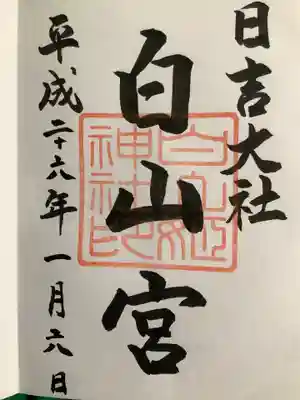 日吉大社
白山宮
平成二十六年一月六日
白山姫
神社印